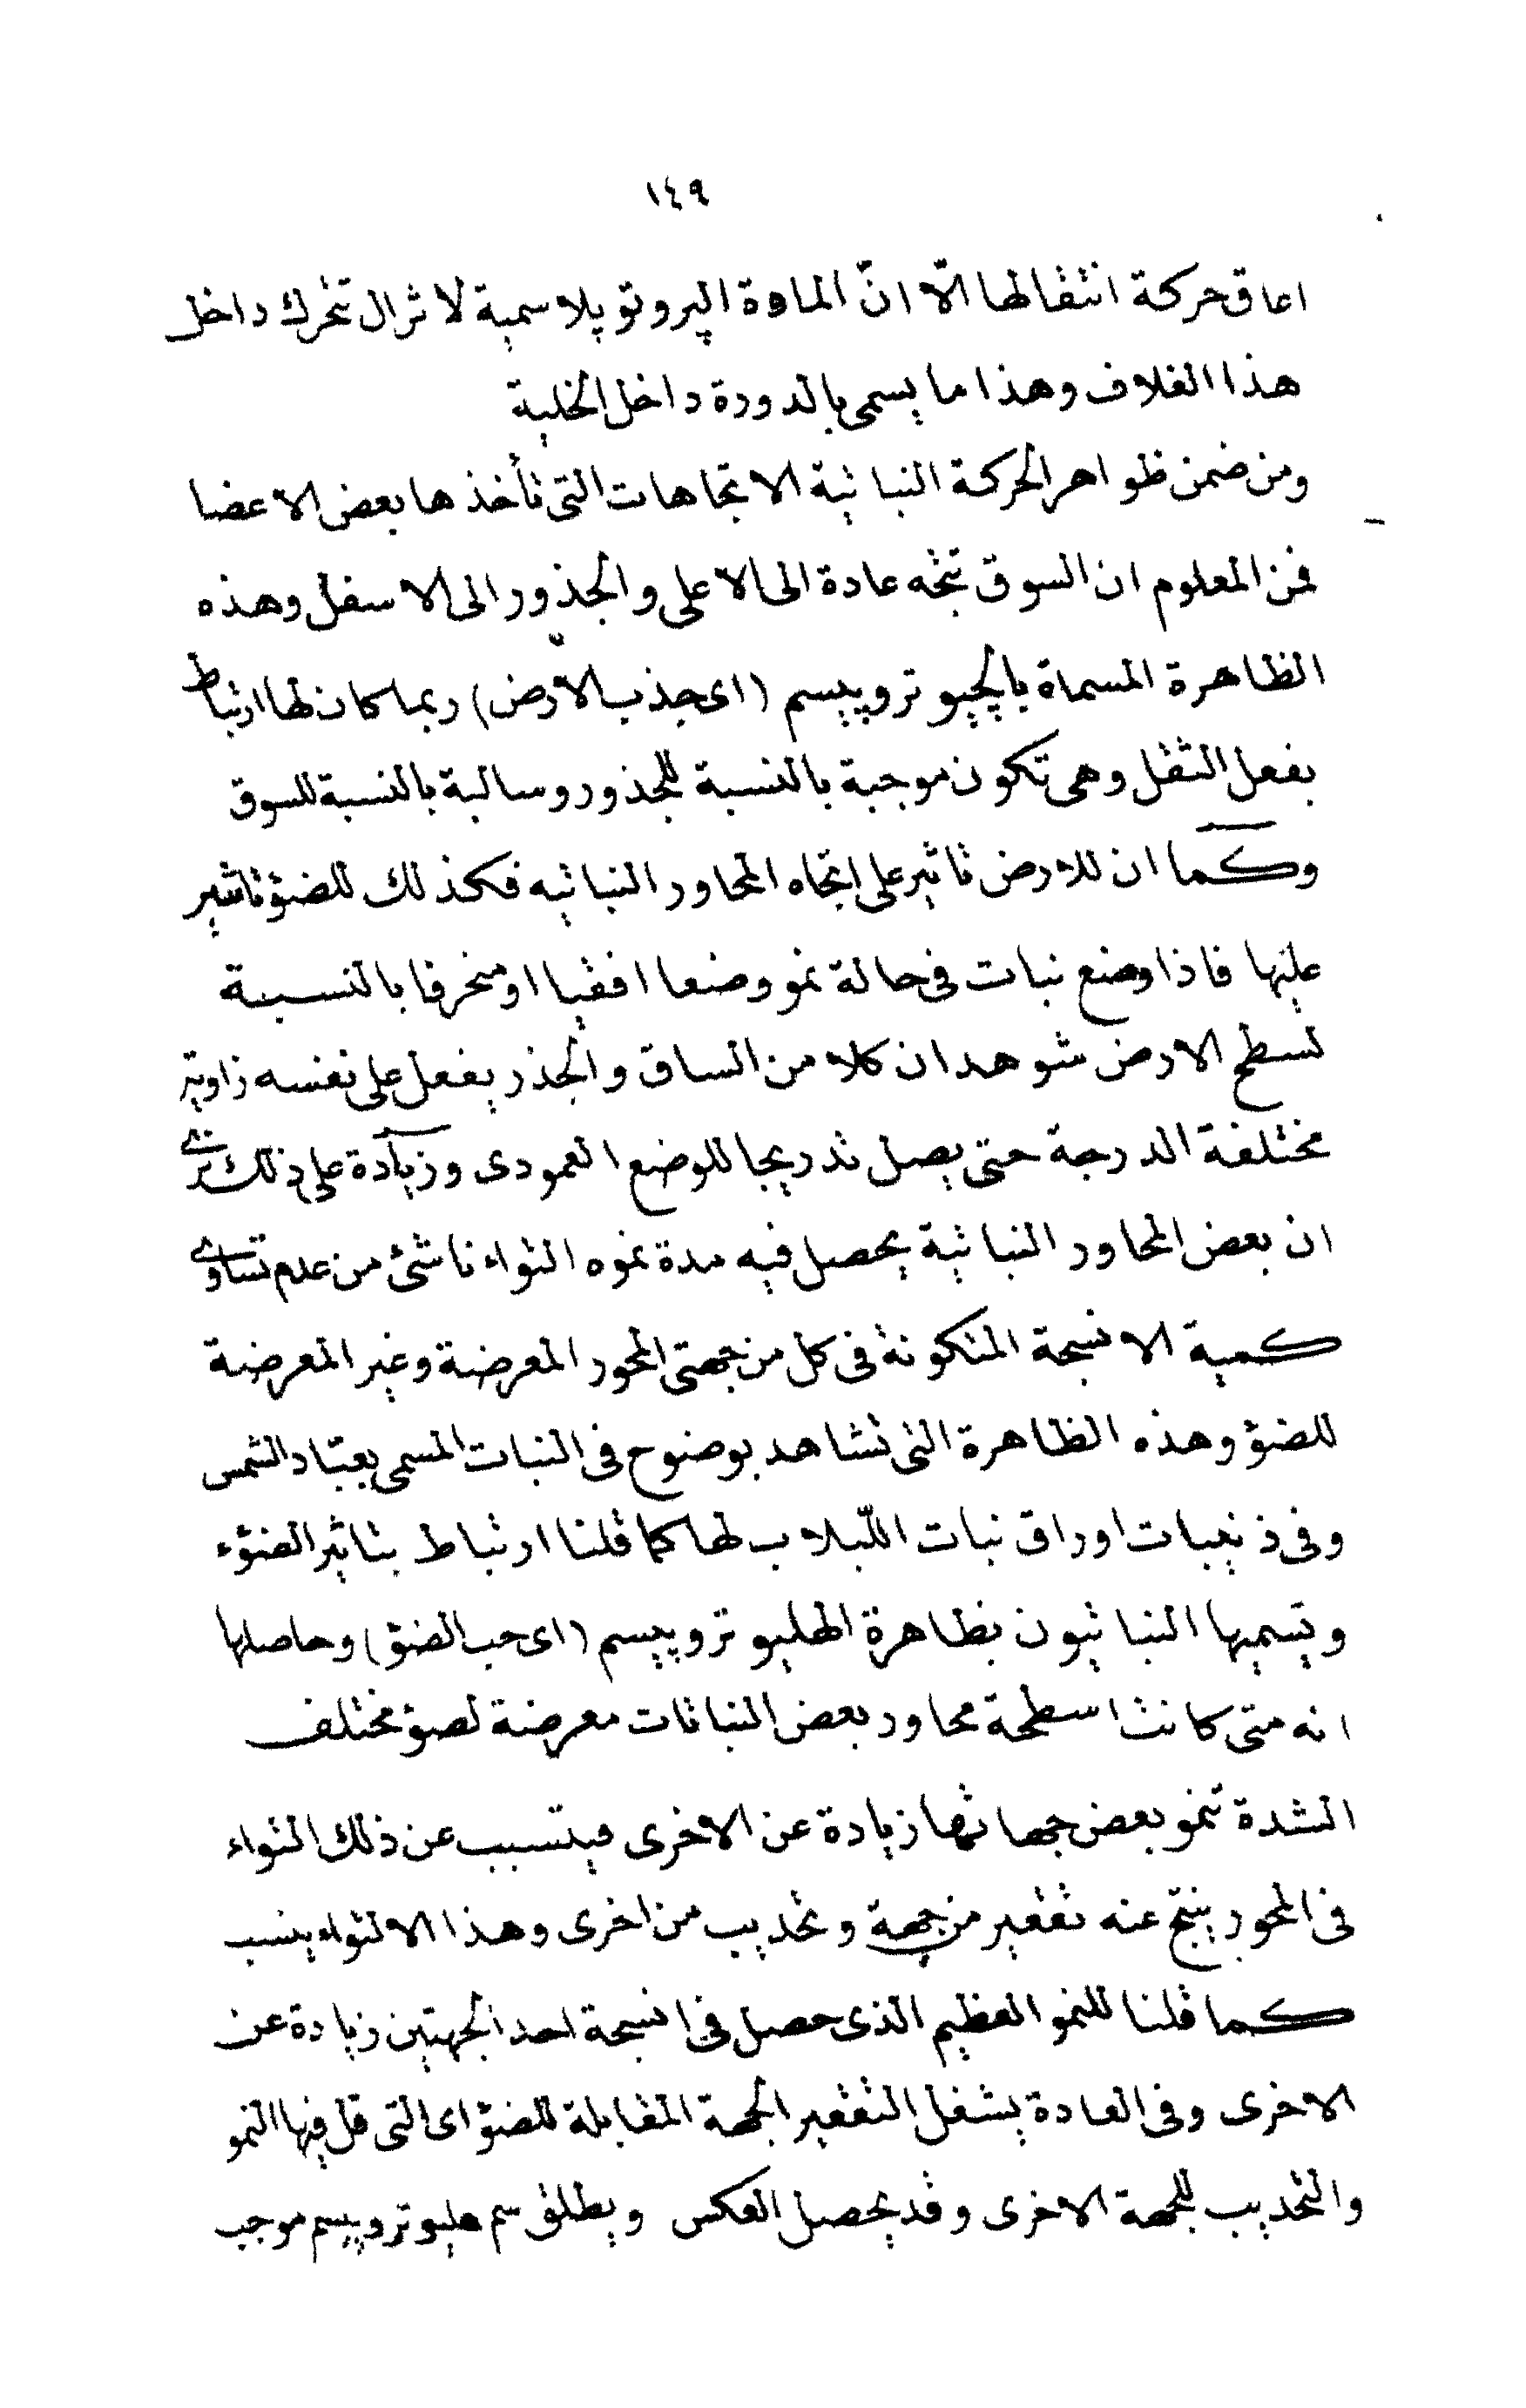 ١٤٩
اعاق حركة انتقالها الّا انّ المادة الپروتوپلاسمية لا تزال تتحرك داخل
هذا الغلاف وهذا ما يسمى بالدورة داخل الخلية
ومن ضمن ظواهر الحركة النباتية الاتجاهات التى تأخذها بعض الاعضا
فمن المعلوم ان السوق تتجه عادة الى الاعلى والجذور الى الاسفل وهذه
الظاهرة المسماة بالچيوتروپيسم (اى جذب الارض) ربما كان لها ارتباط
بفعل الثقل وهى تكون موجبة بالنسبة للجذور وسالبة بالنسبة للسوق
وكما ان للارض تاثير على اتجاه المحاور النباتيه فكذلك للضؤ تاثير
عليها فاذا وضع نبات فى حالة نمو وضعا افقيا او منحرفا بالنسبة
لسطح الارض شوهد ان كلا من الساق والجذر يفعل على نفسه زاوية
مختلفة الدرجة حتى يصل تدريجا للوضع العمودى وزيادة على ذلك نرى
ان بعض المحاور النباتية يحصل فيه مدة نموه التواء ناشئ من عدم تساوى
كمية الانسجة المتكونة فى كل من جهتى المحور المعرضة وغير المعرضة
للضؤ وهذه الظاهرة التى تشاهد بوضوح فى النبات المسمى بعبّاد الشمس
وفى ذنيبات اوراق نبات اللّبلاب لها كما قلنا ارتباط بتاثير الضؤء
وتسميها النباتيون بظاهرة الهليوتروپيسم (اى حب الضؤ) وحاصلها
انه متى كانت اسطحة محاور بعض النباتات معرضة لضؤ مختلف
الشدة تنمو بعض جهاتها زيادة عن الاخرى فيتسبب عن ذلك التواء
فى المحور ينتج عنه تقعير من جهة وتحديب من اخرى وهذا الالتواء ينسب
كما قلنا للنمو العظيم الذى حصل فى انسجة احد الجهتين زيادة عن
الاخرى وفى العادة يشغل التقعير الجهة المقابلة للضؤ اى التى قل فيها النمو
والتحديب للجهة الاخرى وقد يحصل العكس ويطلق سم هليوتروپيسم موجب